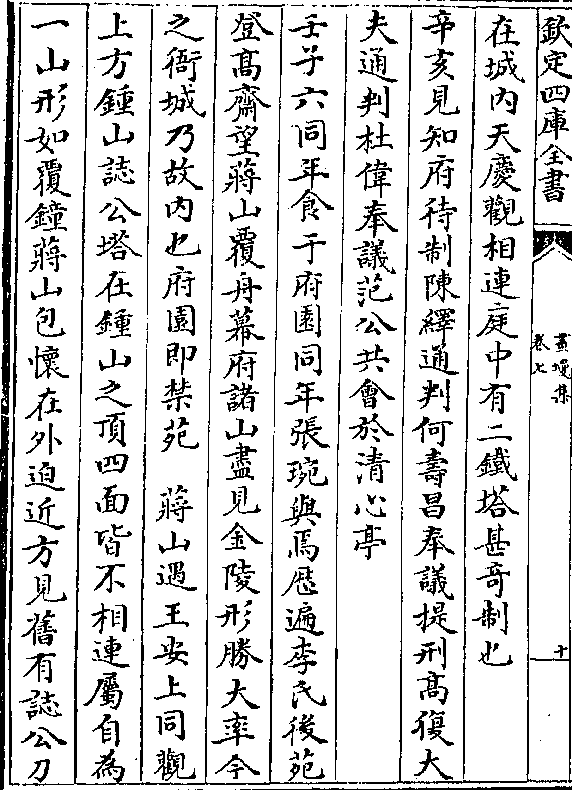 欽定四庫全書
畫墁集
卷七
十
在城内天慶觀相連庭中有二鐵塔甚竒制也
辛亥見知府待制陳繹通判何壽昌奉議提刑髙復大
夫通判杜偉奉議范公共會於清心亭
壬子六同年食于府園同年張琬與焉歴遍李氏後苑
登髙齋望蔣山覆舟幕府諸山盡見金陵形勝大率今
之衙城乃故内也府園即禁苑　蔣山遇王安上同觀
上方鍾山誌公塔在鍾山之頂四面皆不相連屬自為
一山形如覆鐘蔣山包懐在外迫近方見舊有誌公刀